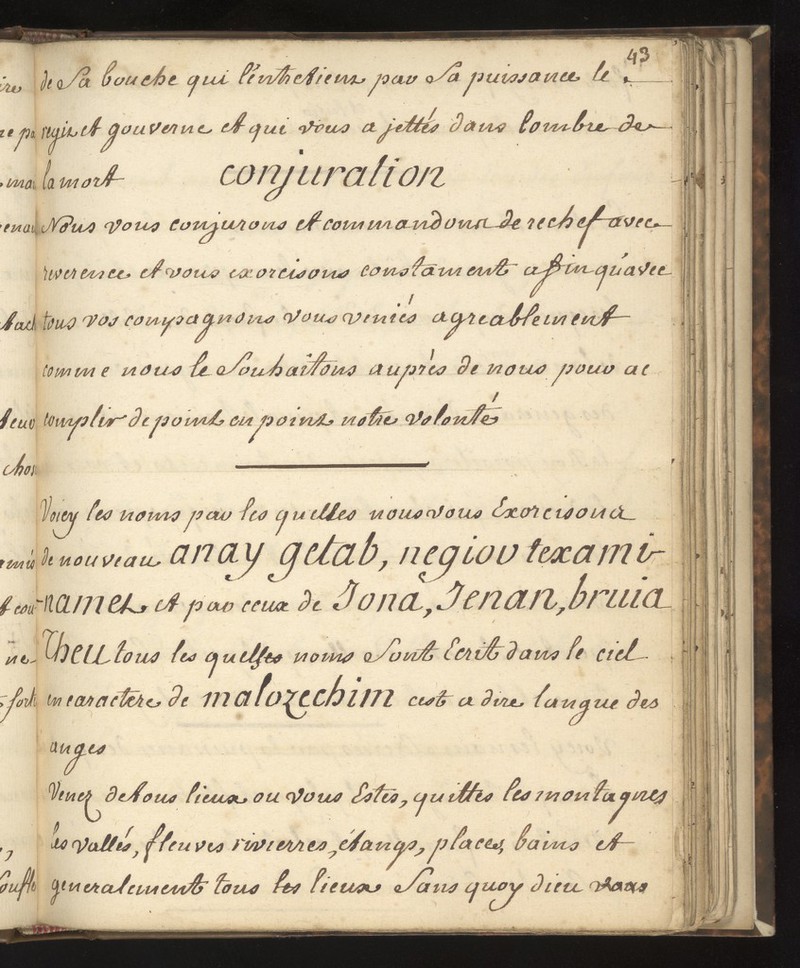 43
de Sa bouche qui l'entretient par Sa puissance le
regit et gouverne et qui vous a jettés dans lombre de
la mort conjuration
Nous vous conjurons et commandons de rechef avec
reverence et vous exorcisons constament affin qu'avec
tous vos compagnons vous veniés agreablement
comme nous le Souhaitons auprès de nous pour ac
complir de point en point notre volonté
Voicy les noms par les quelles nous vous Exorcisons
de nouveau anay getab, negiov texami-
names et par ceux de Iona, Ienan, bruia
Theu tous les quelles noms Sont Ecrit dans le ciel
en caractere de malozechim cest a dire langue des
anges
Venez de tous lieux ou vous Estes, quittes les montagnes
les vallés, fleuves rivierres, étangs, places, bains et
generalement tous les lieux Sans quoy dieu vous